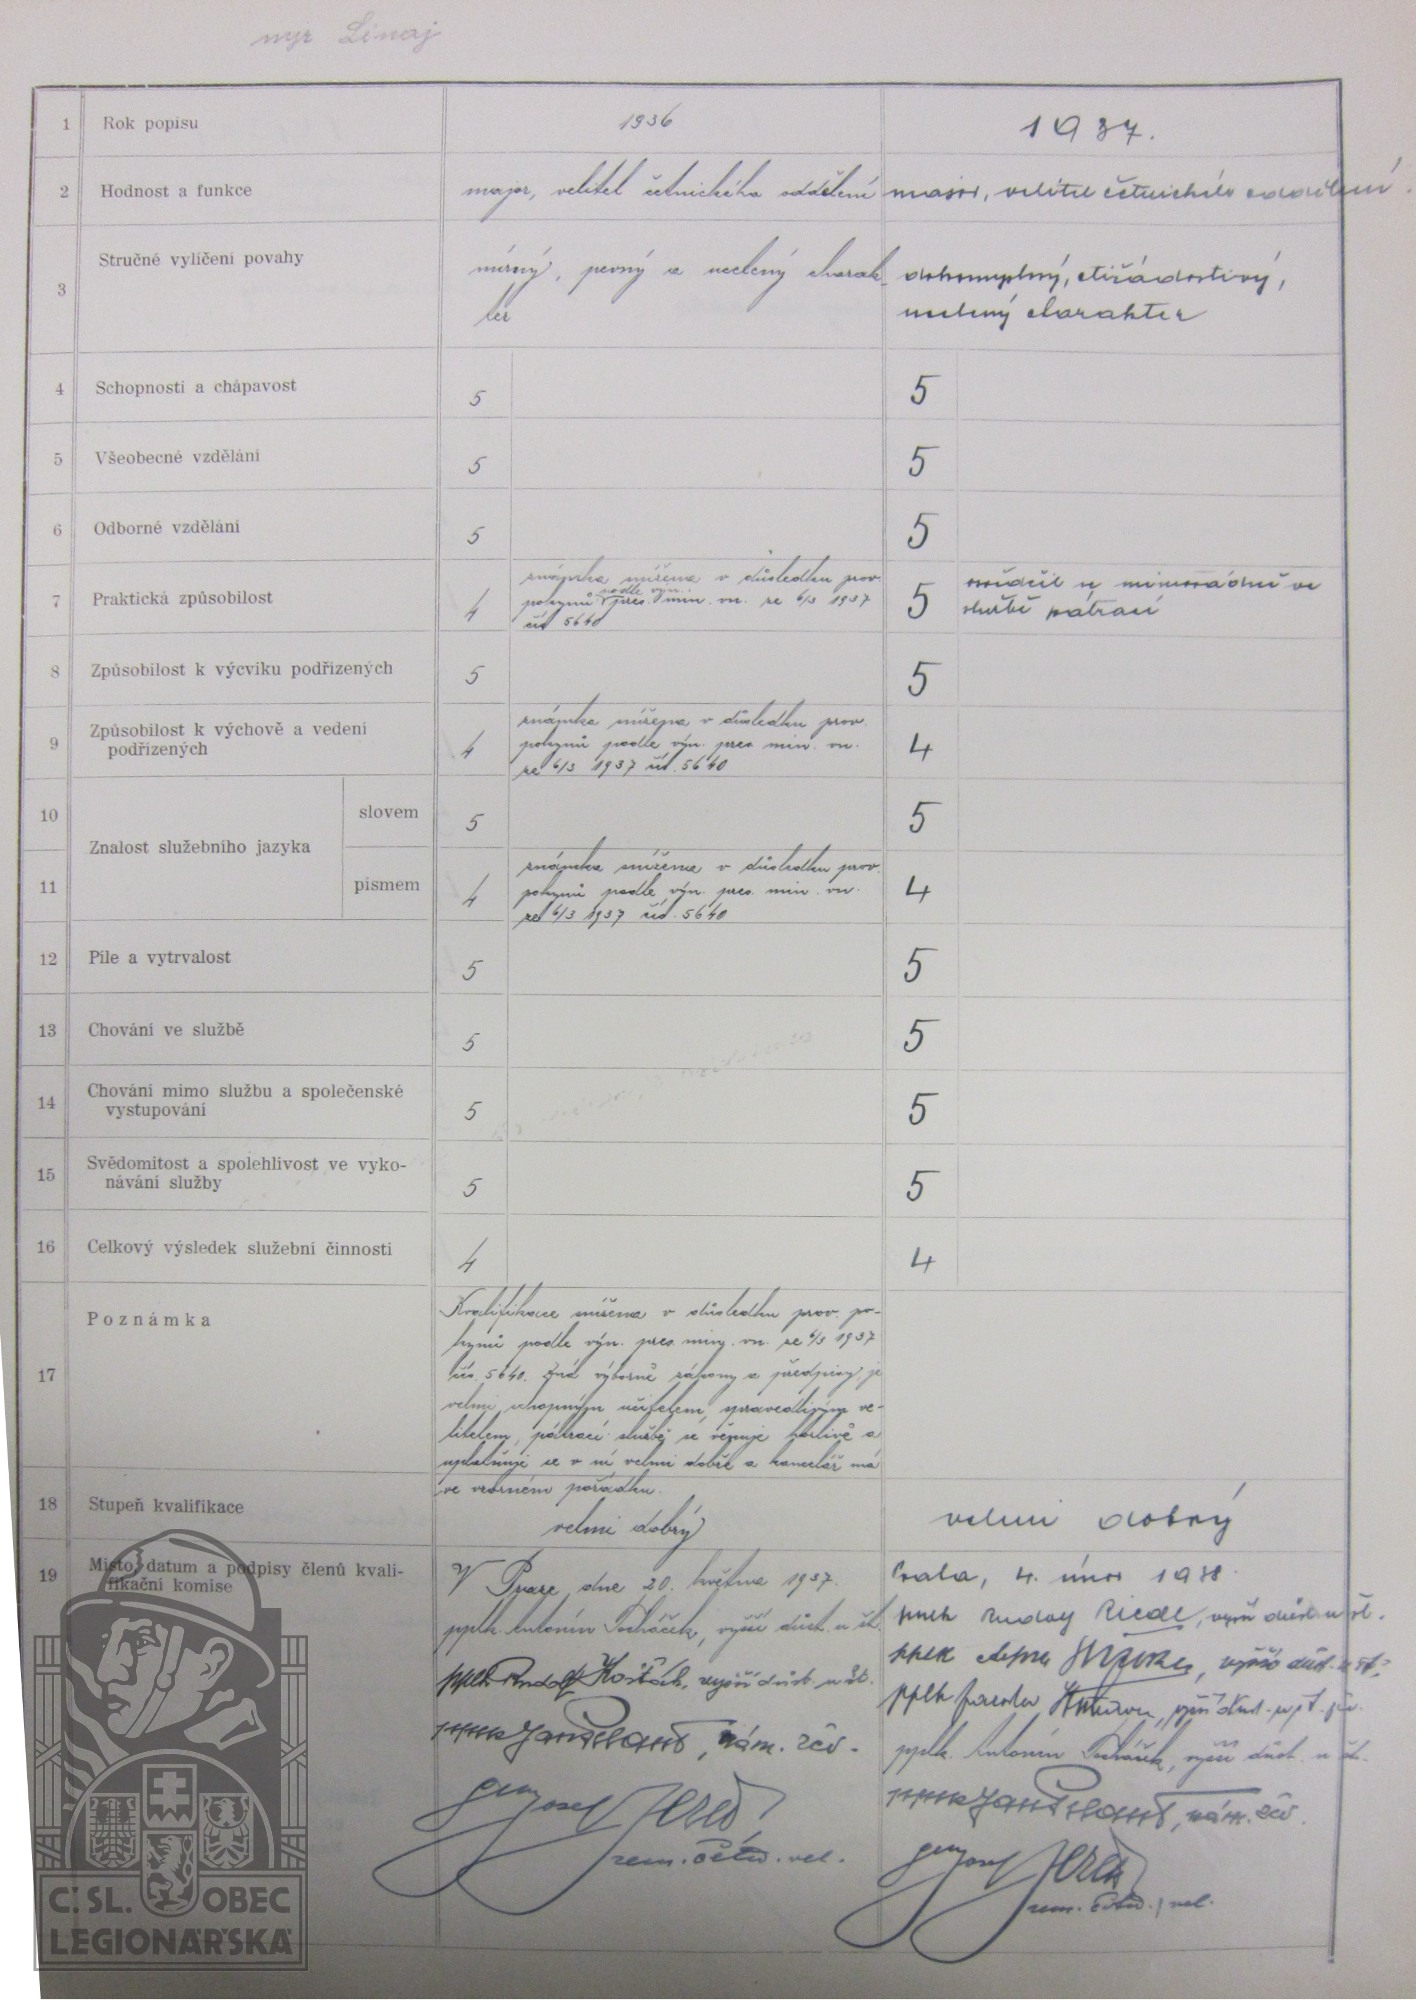 mjr Linaj
1 Rok popisu 1936 1937.
2 Hodnost a funkce major, velitel četnického oddělení major, velitel četnického oddělení.
3 Stručné vylíčení povahy mírný, pevný a ucelený charak- ctižádostivý,
ter ucelený charakter
4 Schopnosti a chápavost 5 5
5 Všeobecné vzdělání 5 5
6 Odborné vzdělání 5 5
7 Praktická způsobilost 4 5
známka snížena v důsledku prov.
pokynů podle výn. pres. min. vn. ze 6/3 1937
čís. 5640
osvědčil se mimořádně ve
službě pátrací
8 Způsobilost k výcviku podřízených 5 5
9 Způsobilost k výchově a vedení
podřízených 4 4
známka snížena v důsledku prov.
pokynů podle výn. pres. min. vn.
ze 6/3 1937 čís. 5640
10 slovem 5 5
Znalost služebního jazyka
11 písmem 4 4
známka snížena v důsledku prov.
pokynů podle výn. pres. min. vn.
ze 6/3 1937 čís. 5640
12 Píle a vytrvalost 5 5
13 Chování ve službě 5 5
14 Chování mimo službu a společenské
vystupování 5 5
15 Svědomitost a spolehlivost ve vyko-
návání služby 5 5
16 Celkový výsledek služební činnosti 4 4
17 Poznámka
Kvalifikace snížena v důsledku prov. po-
kynů podle výn. pres. min. vn. ze 6/3 1937
čís. 5640. Zná výborně zákony a předpisy, je
velmi schopným učitelem, spravedlivým ve-
litelem, pátrací službě se věnuje horlivě a
uplatňuje se v ní velmi dobře a kancelář má
ve vzorném pořádku.
18 Stupeň kvalifikace velmi dobrý velmi dobrý
19 Místo, datum a podpisy členů kvali-
fikační komise
V Praze, dne 20. května 1937.
pplk. Antonín vyšší důst. u št.
pplk Rudolf vyšší důst. u št.
Jan nám. zčv.
gen Josef
zem. četn. vel.
Praha, 4. únor 1938.
pplk Rudolf Riedl, vyšší důst. u št.
pplk vyšší důst. u št.
pplk vyšší důst. u št.
pplk. Antonín vyšší důst. u št.
Jan nám. zčv.
gen Josef
zem. četn. vel.
Č. SL. OBEC
LEGIONÁŘSKÁ